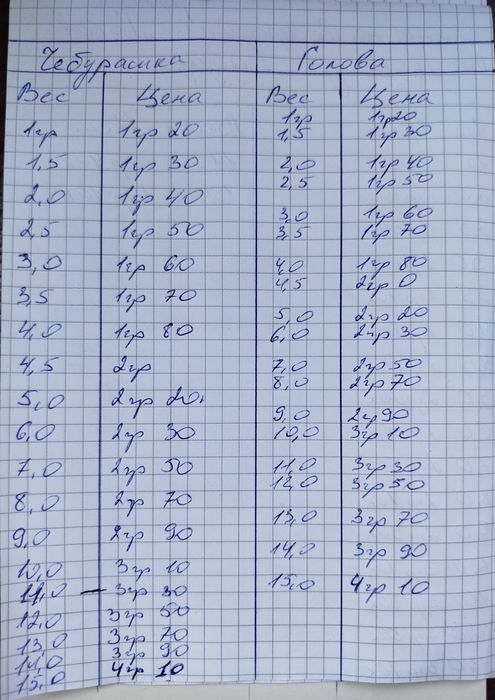 Чебурашка Голова
Вес Цена Вес Цена
1гр 1гр 20 1гр 1гр20
1,5 1гр 30 1,5 1гр 30
2,0 1гр 40 2,0 1гр 40
2,5 1гр 50 2,5 1гр 50
3,0 1гр 60 3,0 1гр 60
3,5 1гр 70 3,5 1гр 70
4,0 1гр 80 4,0 1гр 80
4,5 2гр 4,5 2гр 0
5,0 2гр 20. 5,0 2гр 20
6,0 2гр 30 6,0 2гр 30
7,0 2гр 50 7,0 2гр 50
8,0 2гр 70 8,0 2гр 70
9,0 2гр 90 9,0 2гр90
10,0 3гр 10 10,0 3гр 10
11,0 – 3гр 30 11,0 3гр 30
12,0 3гр 50 12,0 3гр 50
13,0 3гр 70 13,0 3гр 70
14,0 3гр 90 14,0 3гр 90
15,0 4гр 10 15,0 4гр 10